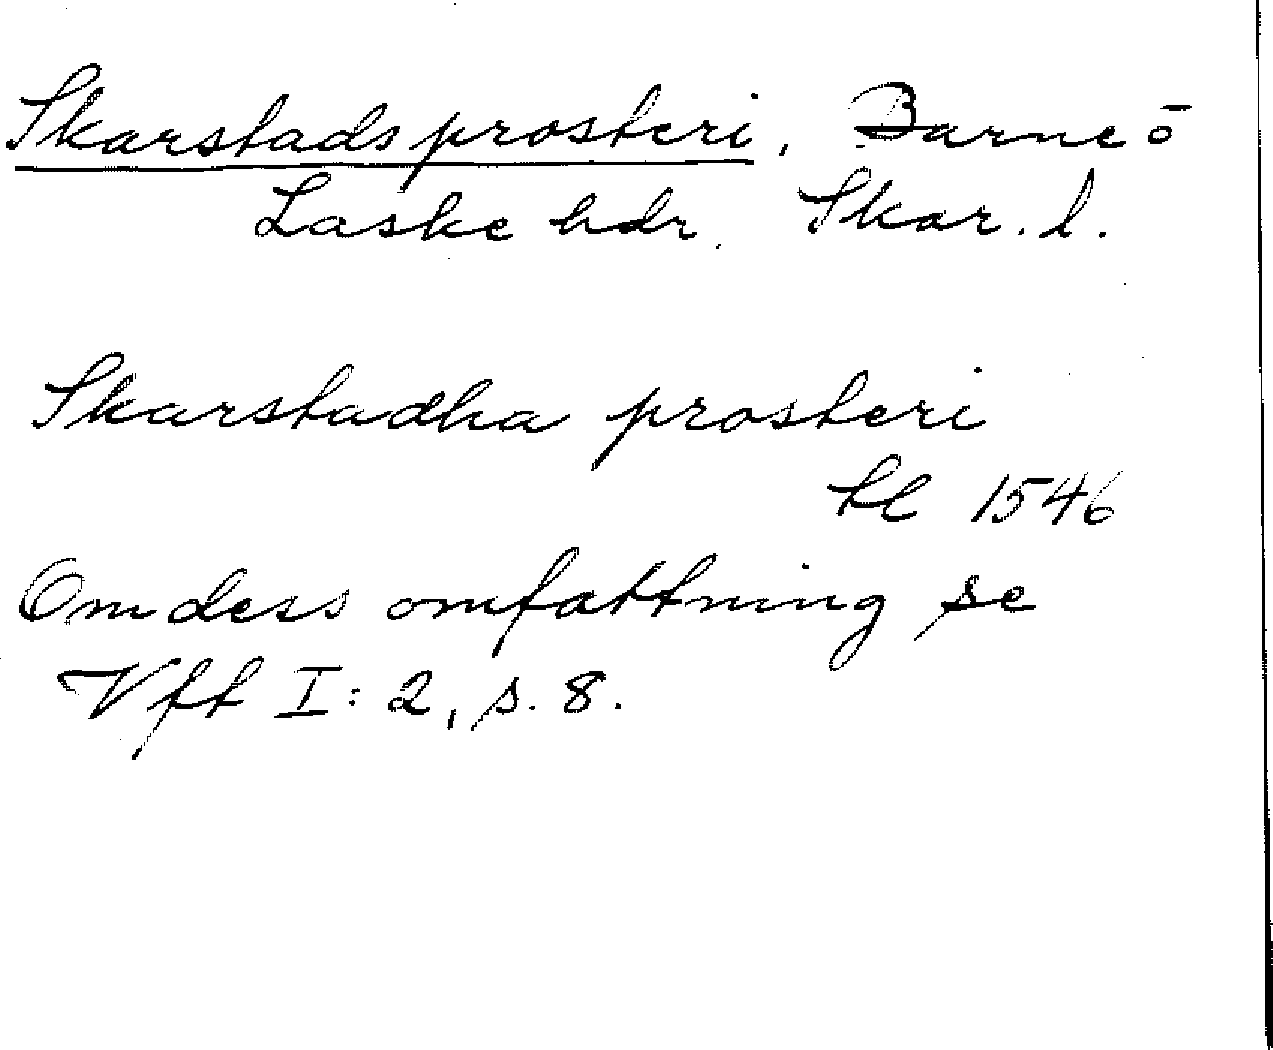 Skarstads prosteri, Barne ō
Laske hdr. Skar. l.
Skarstadha prosteri
tl 1546
Om dess omfattning se
Vft I: 2, s. 8.